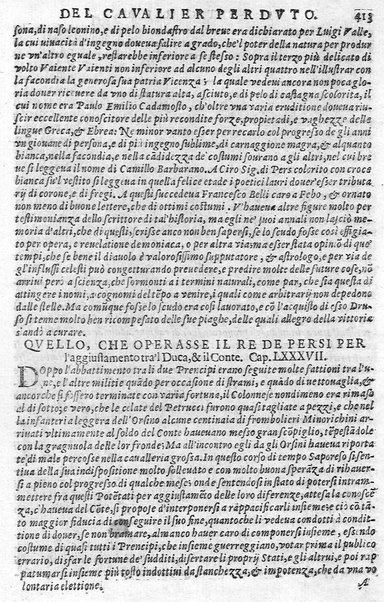 DEL CAVALIER PERDVTO. 413
sona, di naso leonino, e di pelo biondastro dal breve era dichiarato per Luigi Valle,
la cui viuacità d'ingegno doueua salire a grado, che'l poter della natura per produr
ne vn'altro eguale, restarebbe inferiore a se stesso: Sopra il terzo più delicato di
volto Valente Vicenti non inferiore ad alcuno degli altri quattro nell'illustrar con
la facondia la generosa sua patria Vicenza; la quale vdeua ancora non poca glo
ria douer riceuere da vno di statura alta, asciuto, e di pelo di castagna colorita, il
cui nome era Paulo Emilio Cadamosto, ch'oltre vna varia eruditione doueua riu
scir eccellente conoscitore delle più recondite forze, propietadi, e vaghezze delle
lingue Greca, & Ebrea: Ne minor vanto esser per recarlo col progresso de gli anni
vn giouane di persona, e di più ingegno sublime, di carnaggione magra, & alquanto
bianca, nella facondia, e nella cãdidezza de' costumi sourano a gli altri, nel cui bre
ue si leggeua il nome di Camillo Barbarano. A Ciro Sig. di Pers colorito con croce
bianca su'l vestito si leggeua in quella felice etade i poetici lauri douer'esser tributa
rij di corone, e di fregi. A questi succedeua Francesco Belli caro a Febo, & ornato
non meno di buone lettere, che di ottimi costumi. V'haueua altre figure molto per
testimonianza dello scrittore di tal'historia, ma egli ne' suoi annali non lasciò me
moria d'altri, che di questi, scriße anco non ben saperse, se nello scudo foße così effigia
to per opera, e reuelatione demoniaca, o per altra via eßer stata opinõ di que'
tempi, che se bene il diauolo è valorosißimo supputatore, & astrologo, e per via de
gl'influssi celesti può congetturando preuedere, e predire molte delle future cose, nõ
arriui però a scienza, che sormonti a i termini naturali, come par, che sia questa di
attingere i nomi, e cognomi delt̃epo a venire, i quali come arbitrarij non depedono
dalle stelle. Ma comunque foße restò lo scudo era così lauorato, e cõ l'acquisto di eßo Dru
so si tenne molto ben ricompesato delle sue piaghe, delle quali allegro della vittoria
s'andò a curare.
QVELLO, CHE OPERASSE IL RE DE PERSI PER
l'aggiustamento tra'l Duca, & il Conte. Cap. LXXXVII.
DOppo l'abbattimento tra li due Prencipi erano seguite molte fattioni tra l'u-
ne, e l'altre militie quãdo per occasione di strami, e quãdo di uettouaglia, &
ancorche si foßero terminate con varia fortuna, i Colonnesi nondimeno era rima
so al di sotto; e vero, che le celate del Petrucci furono quasi tagliate a pezzi, e che nel
la infanteria leggera dell'Orsino alcune centinaia di frombolieri Minorichini ar
riuati vltimamente al soldo del Conte haueuano meßo grãscõpiglio, tẽpestãdole
con la gragnuola delle lor frombe; Ma all'incontro egli da gli Orsini haueua riporta
te di male percoße nella caualleria großa. In questo corso di tempo Saporeso si sen-
tiua della sua indispositione molto folleuato, e con molto buona sperãza di rihauer-
si a pieno col progresso di qualche mese; onde sentendosi in stato di potersi intram-
mettere fra questi Potẽtati per aggiustamẽto delle loro diferenze, attesa la conosce
za, c'haueua del Cõte, si propose d'interponersi a rappacificarli insieme; e cõ tã-
to maggior fiducia di conseguire il suo fine, quanto che li vedeua condotti à cõditio
ne di douer, se non bramare, almanco hauer caro di componersi insieme, essendo
costume di quasi tutti i Prencipi, che insieme guerreggiano, votar prima il publico
errario, disfar le fortune de' sudditi, disertar li Stati, e gli proprij, e gli altrui, e poi rap
patumarsi insieme più tosto indottiui da stanchezza, & impotenza, che da vna vo
lontaria elettione. A